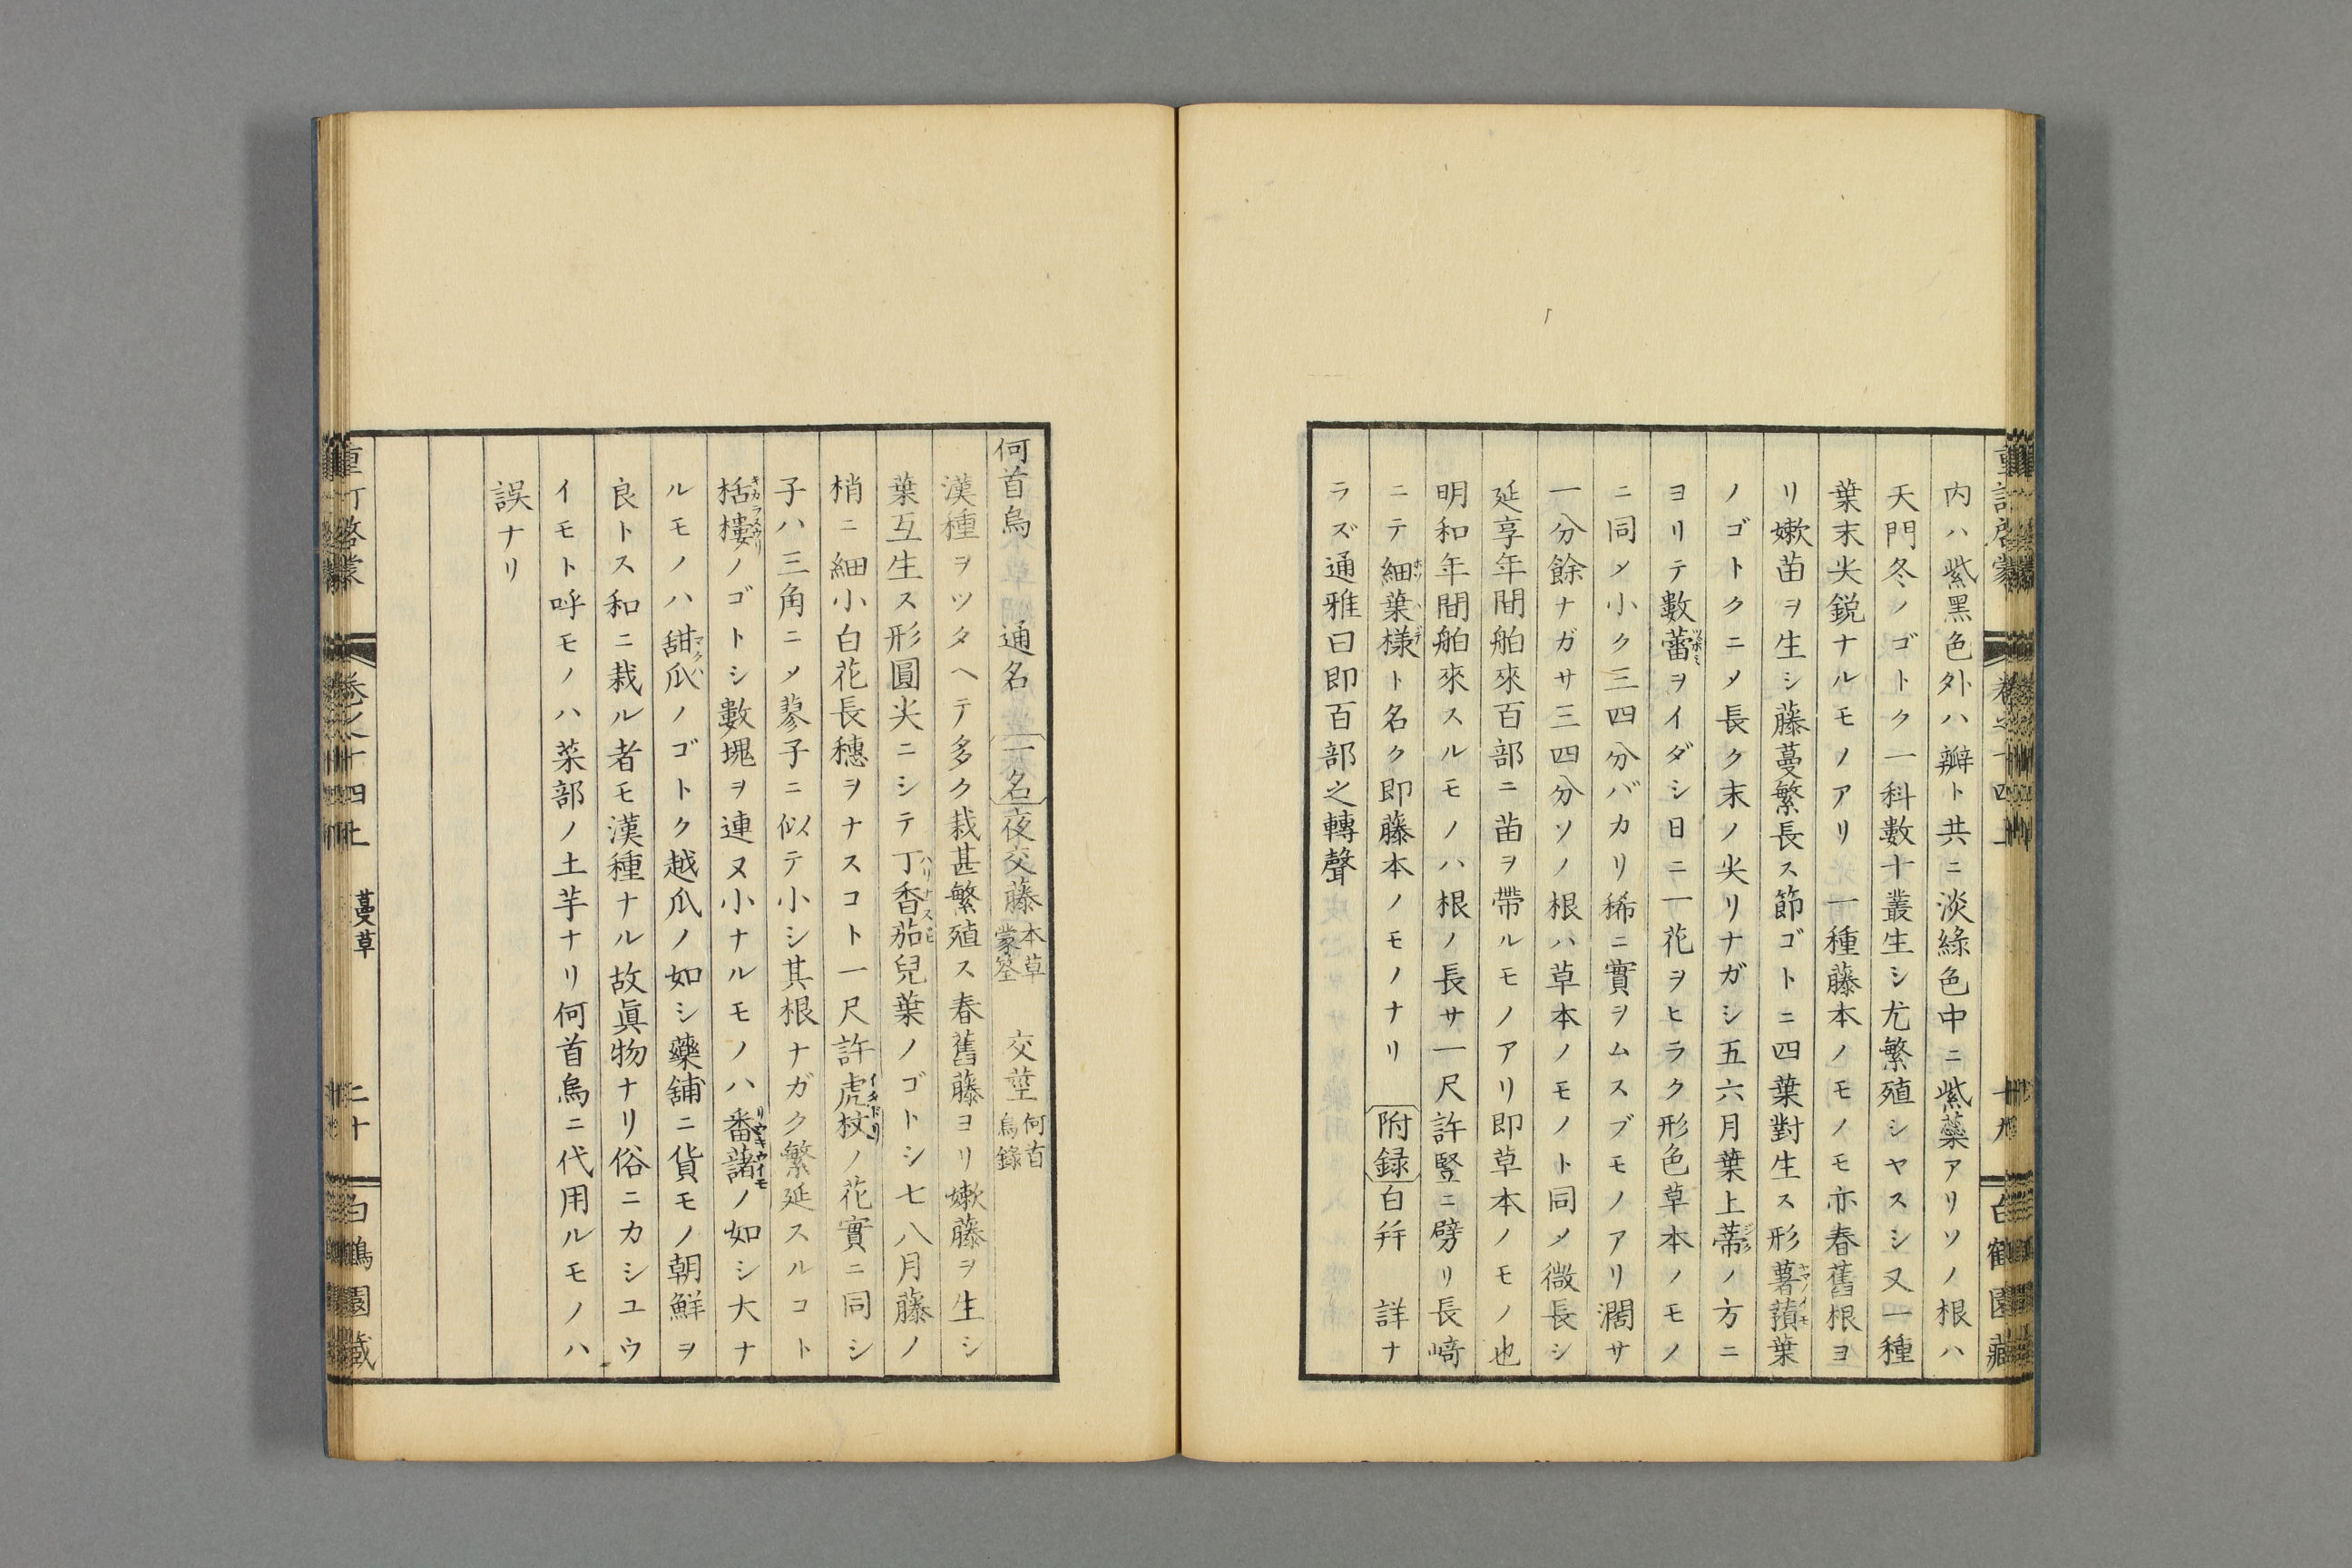 内ハ紫黑色外ハ瓣ト共ニ淡綠色中ニ紫藥アリソノ根ハ
天門冬ノゴトク一科數十叢生シ尤繁殖シヤスシ又一種
葉末尖鋭ナルモノアリ 一種藤本ノモノモ亦春舊根ヨ
リ嫩苗ヲ生シ藤蔓繁長ス節ゴトニ四葉對生ス形薯蕷葉
ノゴトクニメ長ク末ノ尖リナガシ五六月葉上蒂ノ方ニ
ヨリテ數蕾ヲイダシ日ニ一花ヲヒラク形色草本ノモノ
ニ同メ小ク三四分バカリ稀ニ實ヲムスブモノアリ濶サ
一分餘ナガサ三四分ソノ根ハ草本ノモノト同メ微長シ
延享年間舶來百部ニ苗ヲ帶ルモノアリ即草本ノモノ也
明和年間舶來スルモノハ根ノ長サ一尺許豎ニ劈リ長﨑
ニテ細葉樣ト名ク即藤本ノモノナリ 附録 白幷 詳ナ
ラズ通雅曰即百部之轉聲
何首烏 通名 一名 夜交藤 本草蒙筌 交莖 何首烏錄
漢種ヲツタヘテ多ク栽甚繁殖ス春舊藤ヨリ嫩藤ヲ生シ
葉互生ス形圓尖ニシテ丁香茄兒葉ノゴトシ七八月藤ノ
梢ニ細小白花長穗ヲナスコト一尺許虎杖ノ花實ニ同シ
子ハ三角ニメ蓼子ニ似テ小シ其根ナガク繁延スルコト
栝樓ノゴトシ數塊ヲ連ヌ小ナルモノハ番藷ノ如シ大ナ
ルモノハ甜瓜ノゴトク越瓜ノ如シ藥舖ニ貨モノ朝鮮ヲ
良トス和ニ栽ル者モ漢種ナル故眞物ナリ俗ニカシユウ
イモト呼モノハ菜部ノ土芋ナリ何首烏ニ代用ルモノハ
誤ナリ
重訂啓蒙 卷之十四上 蔓草 二十 白鶴園藏